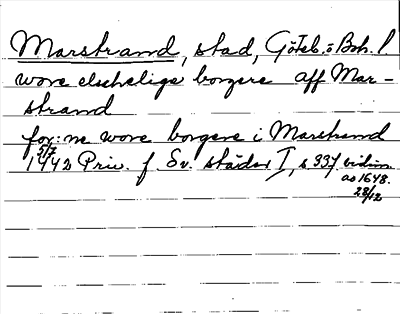 Marstrand, stad, Göteb. o Boh. l
wore elschelige borgere aff Mar-
strand
for:ne wore borgere i Marstrand
5/7 1442 Priv. f. Sv. städer I, s 337. vidim.
av 1648.
28/12